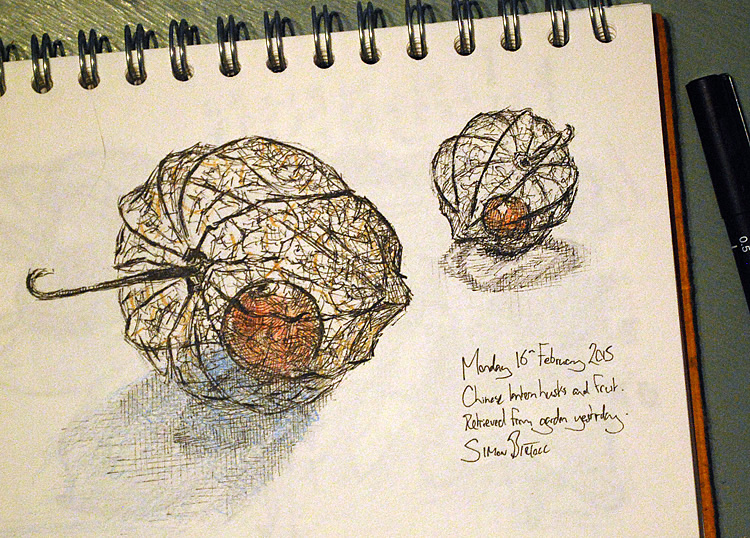 Monday 16th February 2015
Chinese lantern husks and fruit.
Retrieved from garden yesterday.
Simon
0.5